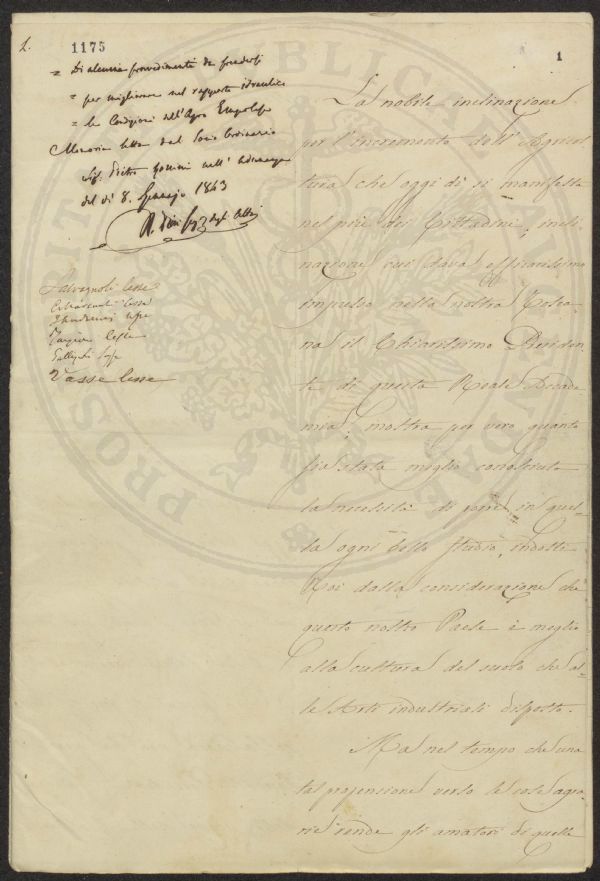 1.
1175
1
= Di alcuni provvedimenti da prendersi
= per migliorare nel rapporto idraulico
= le Condizioni dell'Agro Empolese
Memoria letta dal Socio Ordinario
Sig. Pietro nell' adunanza
del dì 8. Gennajo 1843
degli Atti
Salvagnoli lesse
lesse
lesse
lesse
Vasse lesse
La nobile inclinazione
per l'incremento dell'Agricol-
tura che oggi dì si manifesta
nel più dei Cittadini, incli-
nazione cui dava efficacissimo
impulso nella nostra Tosca-
na il Chiarissimo Presiden-
te di questa Reale Accade-
mia, mostra per vero quanto
sia stata meglio conosciuta
la necessità di porre in quel-
la ogni bello studio, indotti
Noi dalla considerazione che
questo nostro Paese è meglio
alla cultura del suolo che al-
le Arti industriali disposto.
Ma nel tempo che una
tal propensione verso le cose agra-
rie rende gli amatori di quelle
PROSPERITATI PUBLICAE AUGENDAE